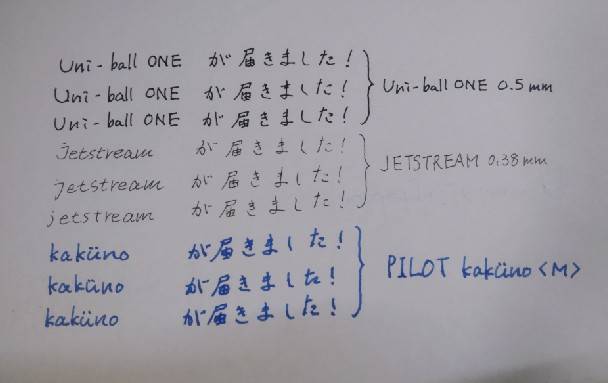 Uni-ball ONE が届きました!
Uni-ball ONE が届きました! Uni-ball ONE 0.5mm
Uni-ball ONE が届きました!
Jetstream が届きました!
jetstream が届きました! JETSTREAM 0.38mm
jetstream が届きました!
kaküno が届きました!
kaküno が届きました! PILOT kaküno <M>
kaküno が届きました!